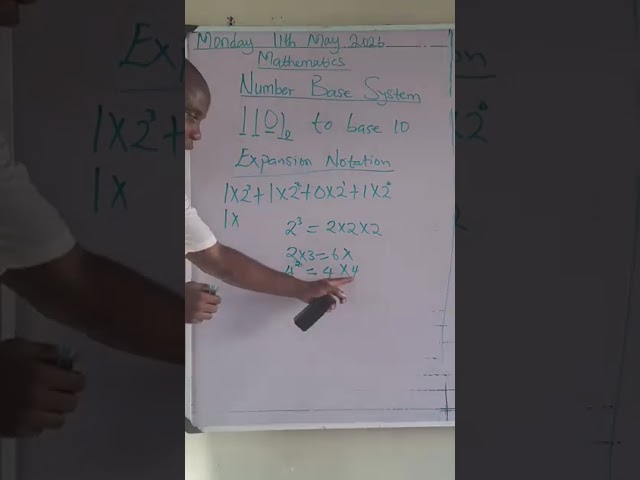 Monday 11th May 2026
Mathematics
Number Base System
1101₂ to base 10
Expansion Notation
1x2³+1x2²+0x2¹+1x2⁰
1x
2³ = 2x2x2
2x3=6x
4² = 4x4